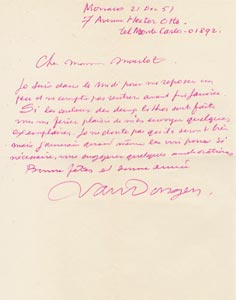 Monaco 21 Dec 51
7 Avenue Hector Otto
tel Monte Carlo - 018.92.
Cher Monsieur Mourlot
Je suis dans le midi pour me reposer un
peu et ne compte pas rentrer avant fin Janvier.
Si les couleurs des deux lithos sont faites
vous me feriez plaisir de m'en envoyer quelques
exemplaires. Je ne doute pas qu'ils seront très
mais j'aimerais quand même les voir pour si
nécessaire, vous suggérer quelques améliorations.
Bonnes fêtes et bonne année
Van Dongen